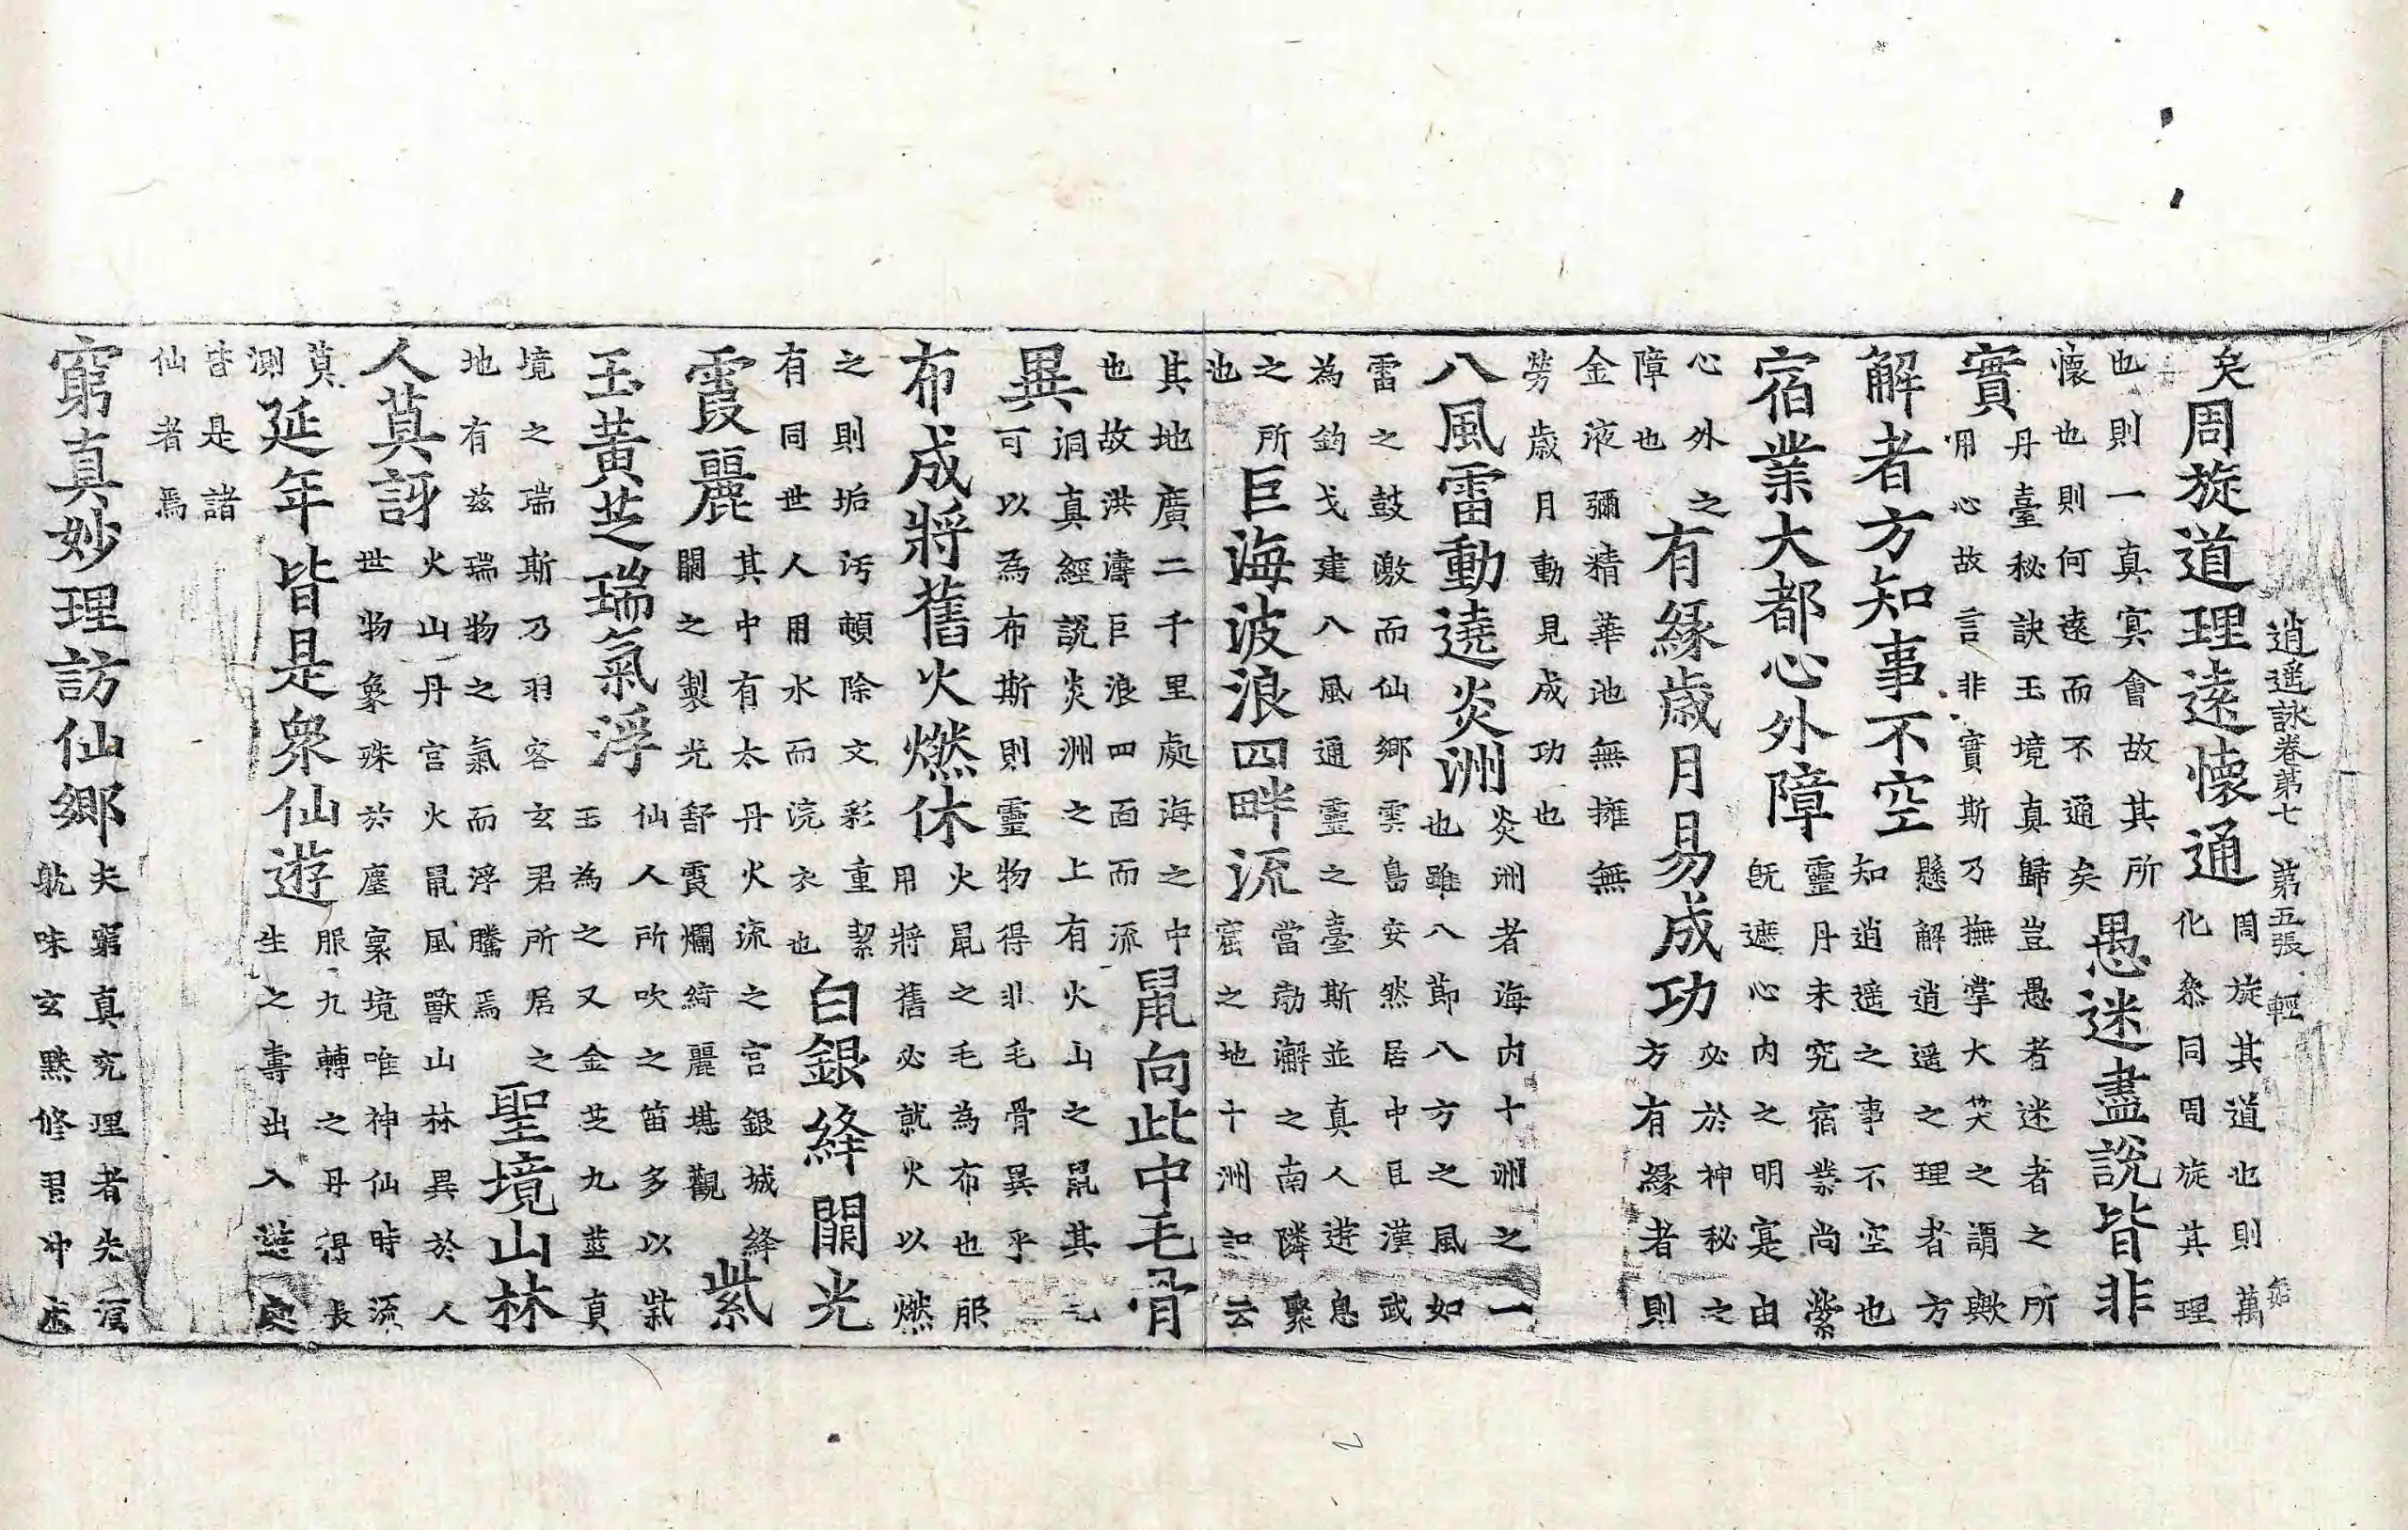 逍遥詠卷第七 第五張 輕
矣周旋道理遠懷通 周旋其道也則萬
化叅同周旋其理
也則一真冥會故其所
懷也則何遠而不通矣 愚迷盡說皆非
實 丹臺秘訣玉境真歸豈愚者迷者之所
用心故言非實斯乃撫掌大笑之謂歟
解者方知事不空 懸解逍遥之理者方
知逍遥之事不空也
宿業大都心外障 靈丹未究宿業尚縈
旣遮心內之明寔由
心外之
障也 有緣歲月易成功 必於神秘之
方有緣者則
金液彌精華池無擁無
勞歲月動見成功也
八風雷動遶炎洲 炎洲者海內十洲之一
也雖八節八方之風如
雷之鼓激而仙鄉雲島安然居中且漢武
為鈞弋建八風通靈之臺斯並真人遊息
之所
也 巨海波浪四畔流 當勃澥之南隣聚
窟之地十洲記云
其地廣二千里處海之中
也故洪濤巨浪四面而流 鼠向此中毛骨
異 洞真經說炎洲之上有火山之鼠其毛
可以為布斯則靈物得非毛骨異乎
布成將舊火燃休 火鼠之毛為布也服
用將舊必就火以燃
之則垢污頓除文彩重絜
有同世人用水而浣衣也 白銀絳闕光
霞麗 其中有太丹火流之宮銀城絳
闕之製光舒霞爛綺麗堪觀 紫
玉黃芝瑞氣浮 仙人所吹之笛多以紫
玉為之又金芝九莖真
境之瑞斯乃羽客玄君所居之
地有兹瑞物之氣而浮騰焉 聖境山林
人莫訝 火山丹宮火鼠風獸山林異於人
世物象殊於塵寰境唯神仙時流
莫
測 延年皆是衆仙遊 服九轉之丹得長
生之壽出入遊處
皆是諸
仙者焉
窮真妙理訪仙鄉 夫窮真究理者先須
躭味玄黙修習冲虛